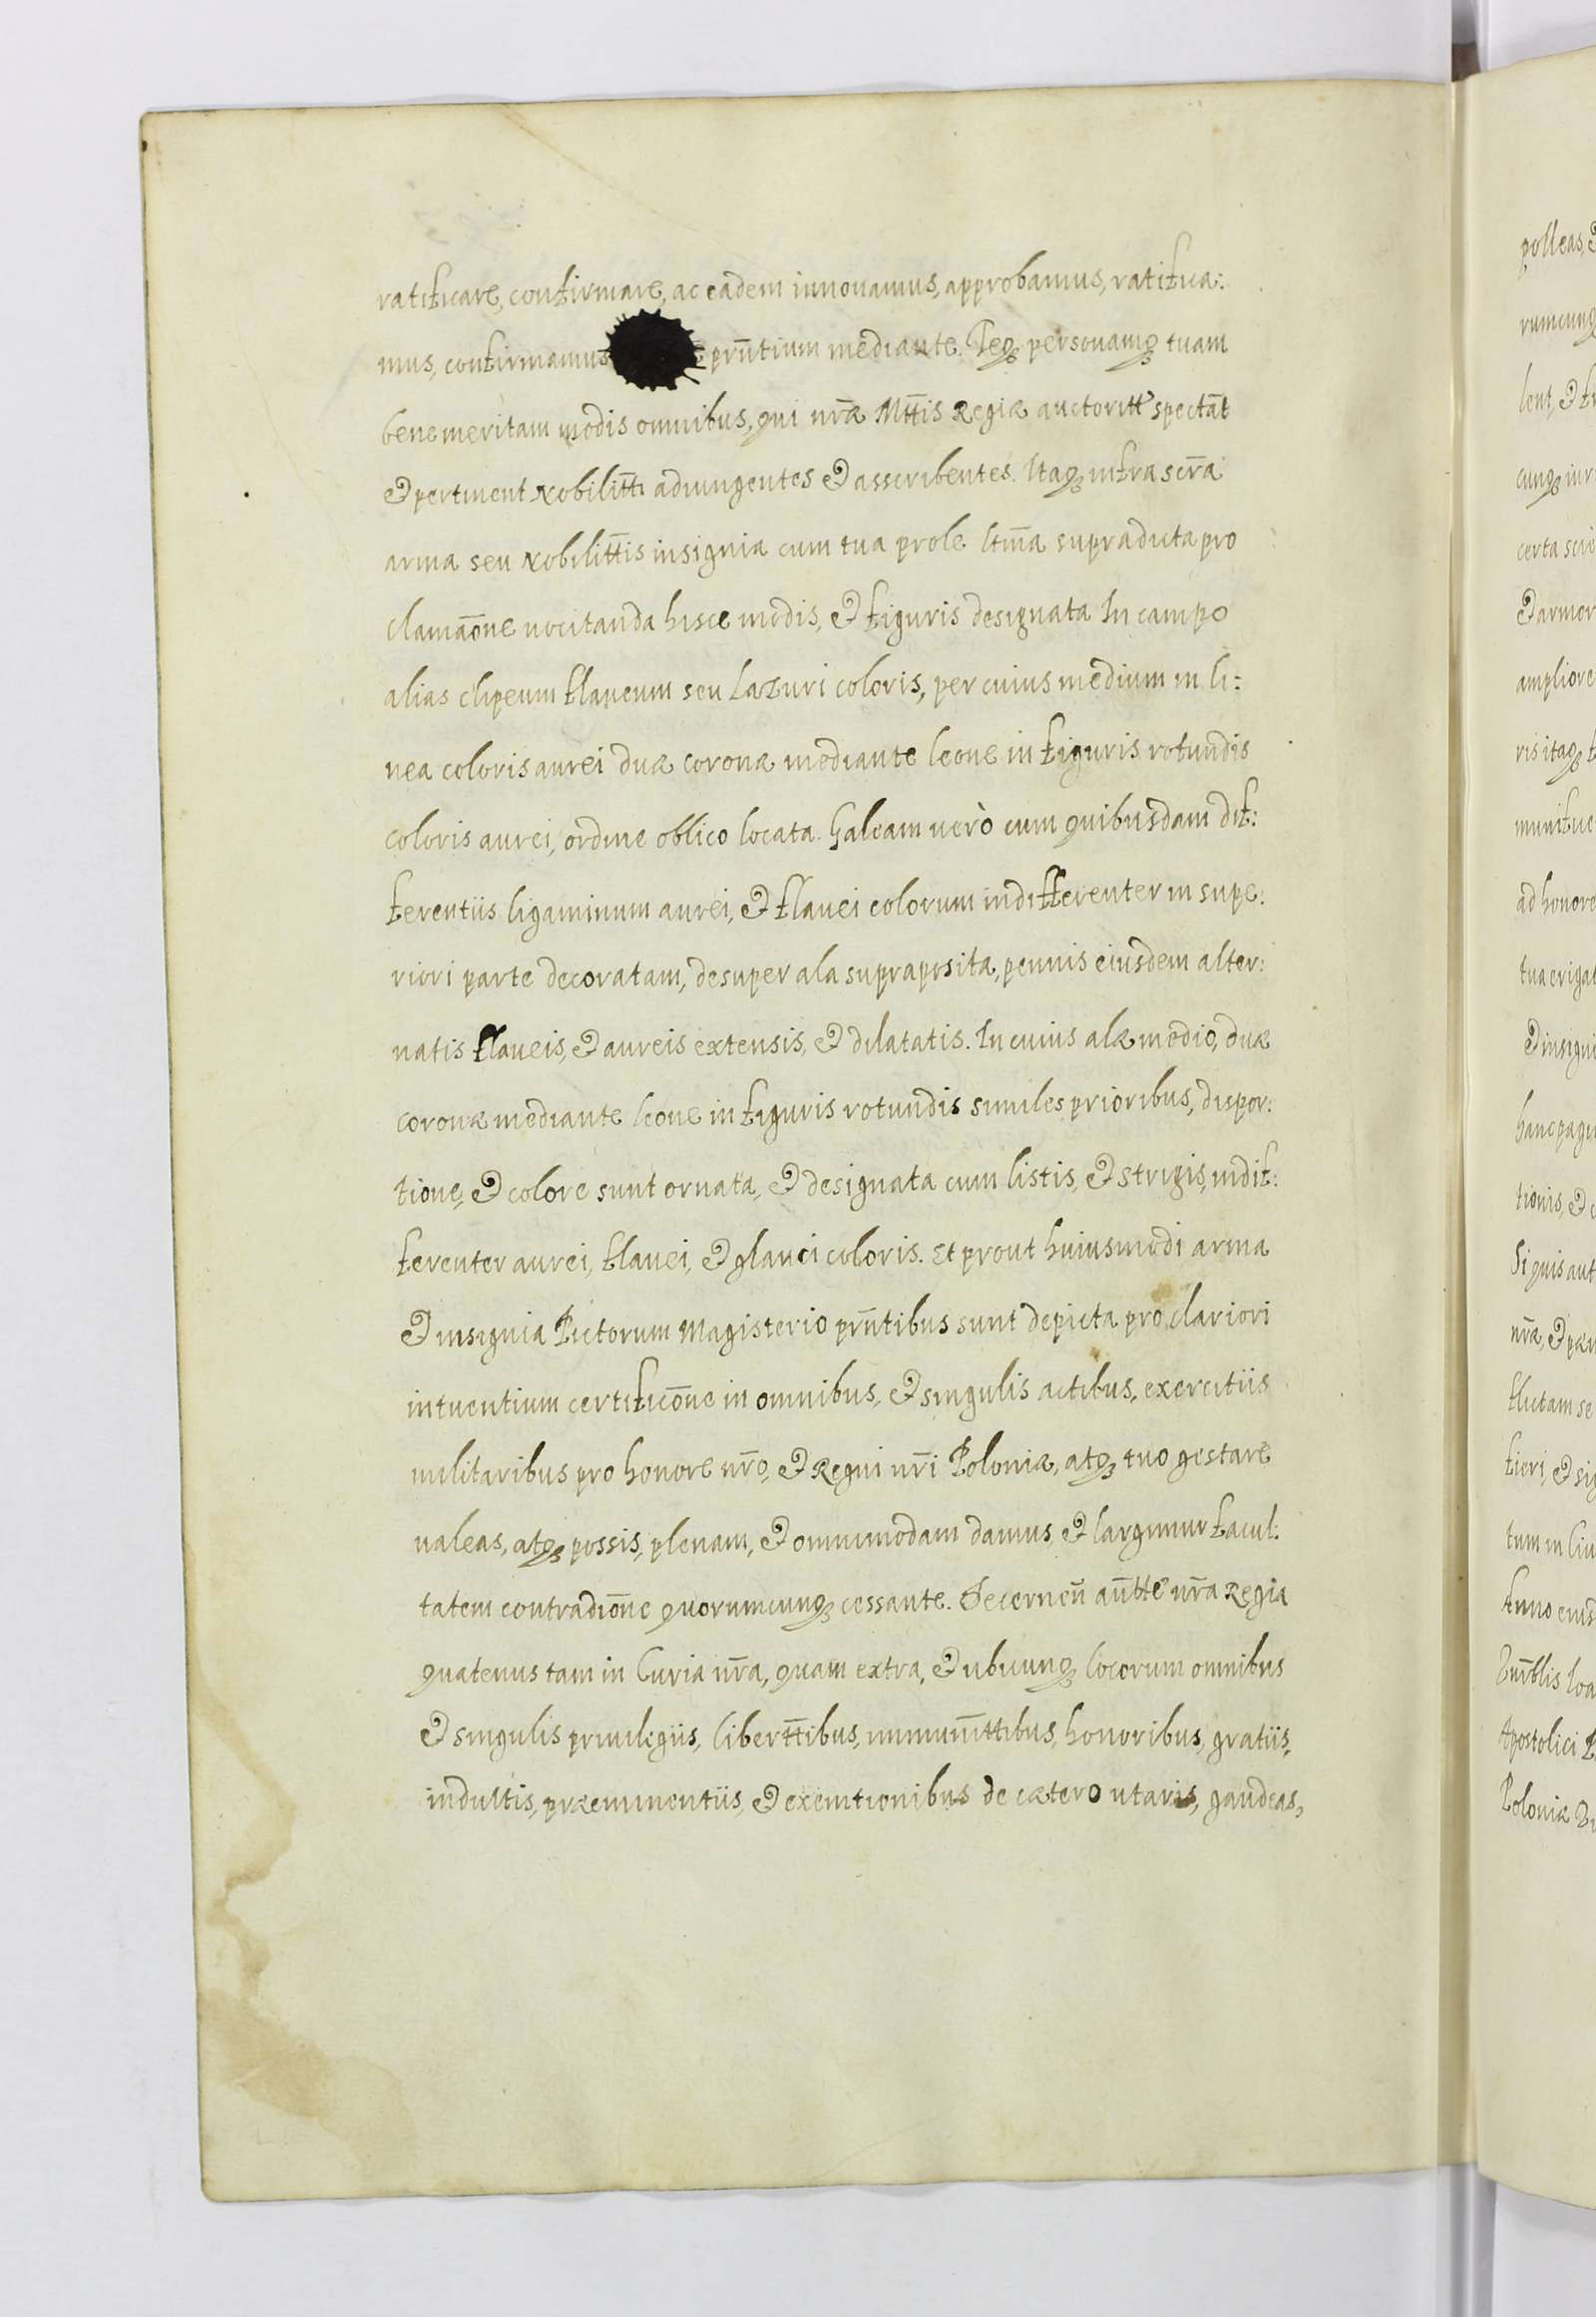 ratificare, confirmare, ac eadem innouamus, approbamus, ratifica:
mus, confirmamus pr̃ntium mediante. Teq₃ personamq₃ tuam
benemeritam modis omnibus, qui nr̃æ Mtt̃is Regiæ auctoritti spectãt
& pertinent Nobilitt̃i adiungentes & asscribentes. Itaq₃ infrascr̃a
arma seu Nobilitt̃is insignia cum tua prole ltm̃a supradicta pro
clamaõne uocitanda hisce modis, & figuris designata In campo
alias clipeum flaueum seu Lazuri coloris, per cuius medium in li:
nea coloris aurei duæ coronæ mediante leone in figuris rotundis
coloris aurei, ordine oblico locata. Galeam uerò cum quibusdam dif:
ferentiis ligaminum aurei, & flauei colorum indifferenter in supe:
riori parte decoratam, desuper ala supraposita, pennis eiusdem alter:
natis flaueis, & aureis extensis, & dilatatis. In cuius alæ medio, duæ
coronæ mediante leone in figuris rotundis similes prioribus, dispor:
tione, & colore sunt ornata, & designata cum listis, & strigis, indif:
ferenter aurei, flauei, & glauci coloris. Et prout huiusmodi arma
& insignia Pictorum Magisterio pr̃ntibus sunt depicta pro clariori
intuentium certificõne in omnibus, & singulis actibus, exercitiis
militaribus pro honore nr̃o, & Regni nr̃i Poloniæ, atq₃ tuo gestare
ualeas, atq₃ possis, plenam, & omnimodam damus, & largimur facul:
tatem contradiõne quorumcunq₃ cessante. Decerneñ aũtte nr̃a Regia
quatenus tam in Curia nr̃a, quam extra, & ubicunq₃ locorum omnibus
& singulis priuilegiis, libertt̃ibus, immunitt̃ibus, honoribus, gratiis,
indultis, præeminentiis, & exemtionibus de cætero utaris, gaudeas,
polleas, &
rumcunq₃
lent, & 
cunq₃ iur
certa scie
& armor
ampliore
ris itaq₃ 
munifice
ad honore
tua erigat
& insigni
hanc pagi
tionis, & c
Si quis aut
nr̃æ, & pæn
flictam se
fieri, & sig
tum in Ciu
Anno eius

Apostolici P
Poloniæ